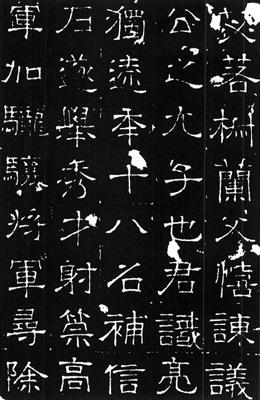 落蘭父諫議
公之九子也君識亮
獨遠年十八召補信
石遂舉秀才射策高
軍加驤將軍尋除